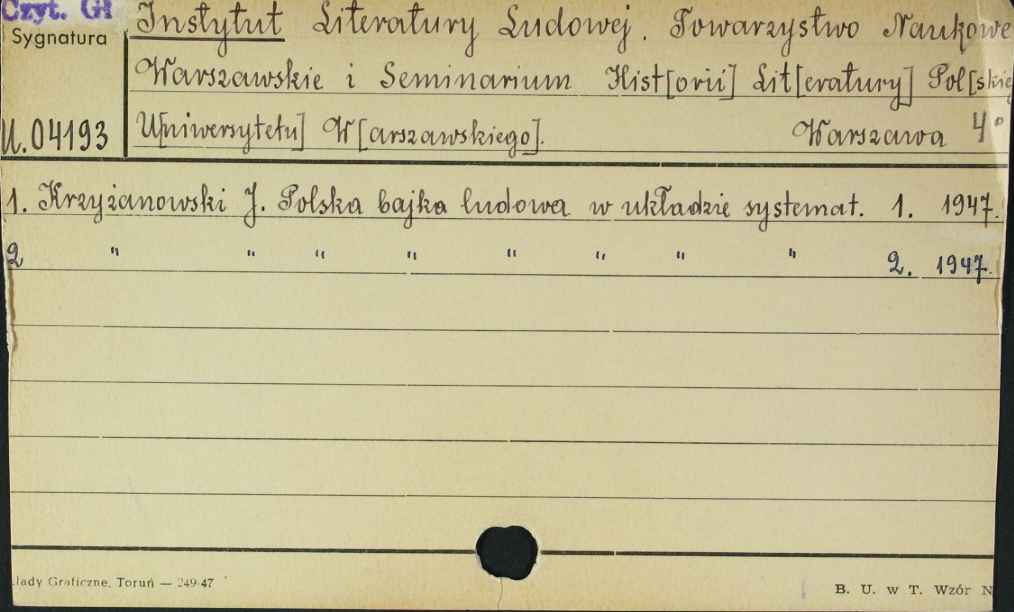 Czyt. Gł
Sygnatura
Instytut Literatury Ludowej. Towarzystwo Naukowe
Warszawskie i Seminarium Hist[orii] Lit[eratury] Pol[skie
U.04193
U[niwersytetu] W[arszawskiego]. Warszawa 4°
1. Krzyżanowski J. Polska bajka ludowa w układzie systemat. 1. 1947.
2 " " " " " " " " 2. 1947.
łady Graficzne, Toruń — 249-47
B. U. w T. Wzór N